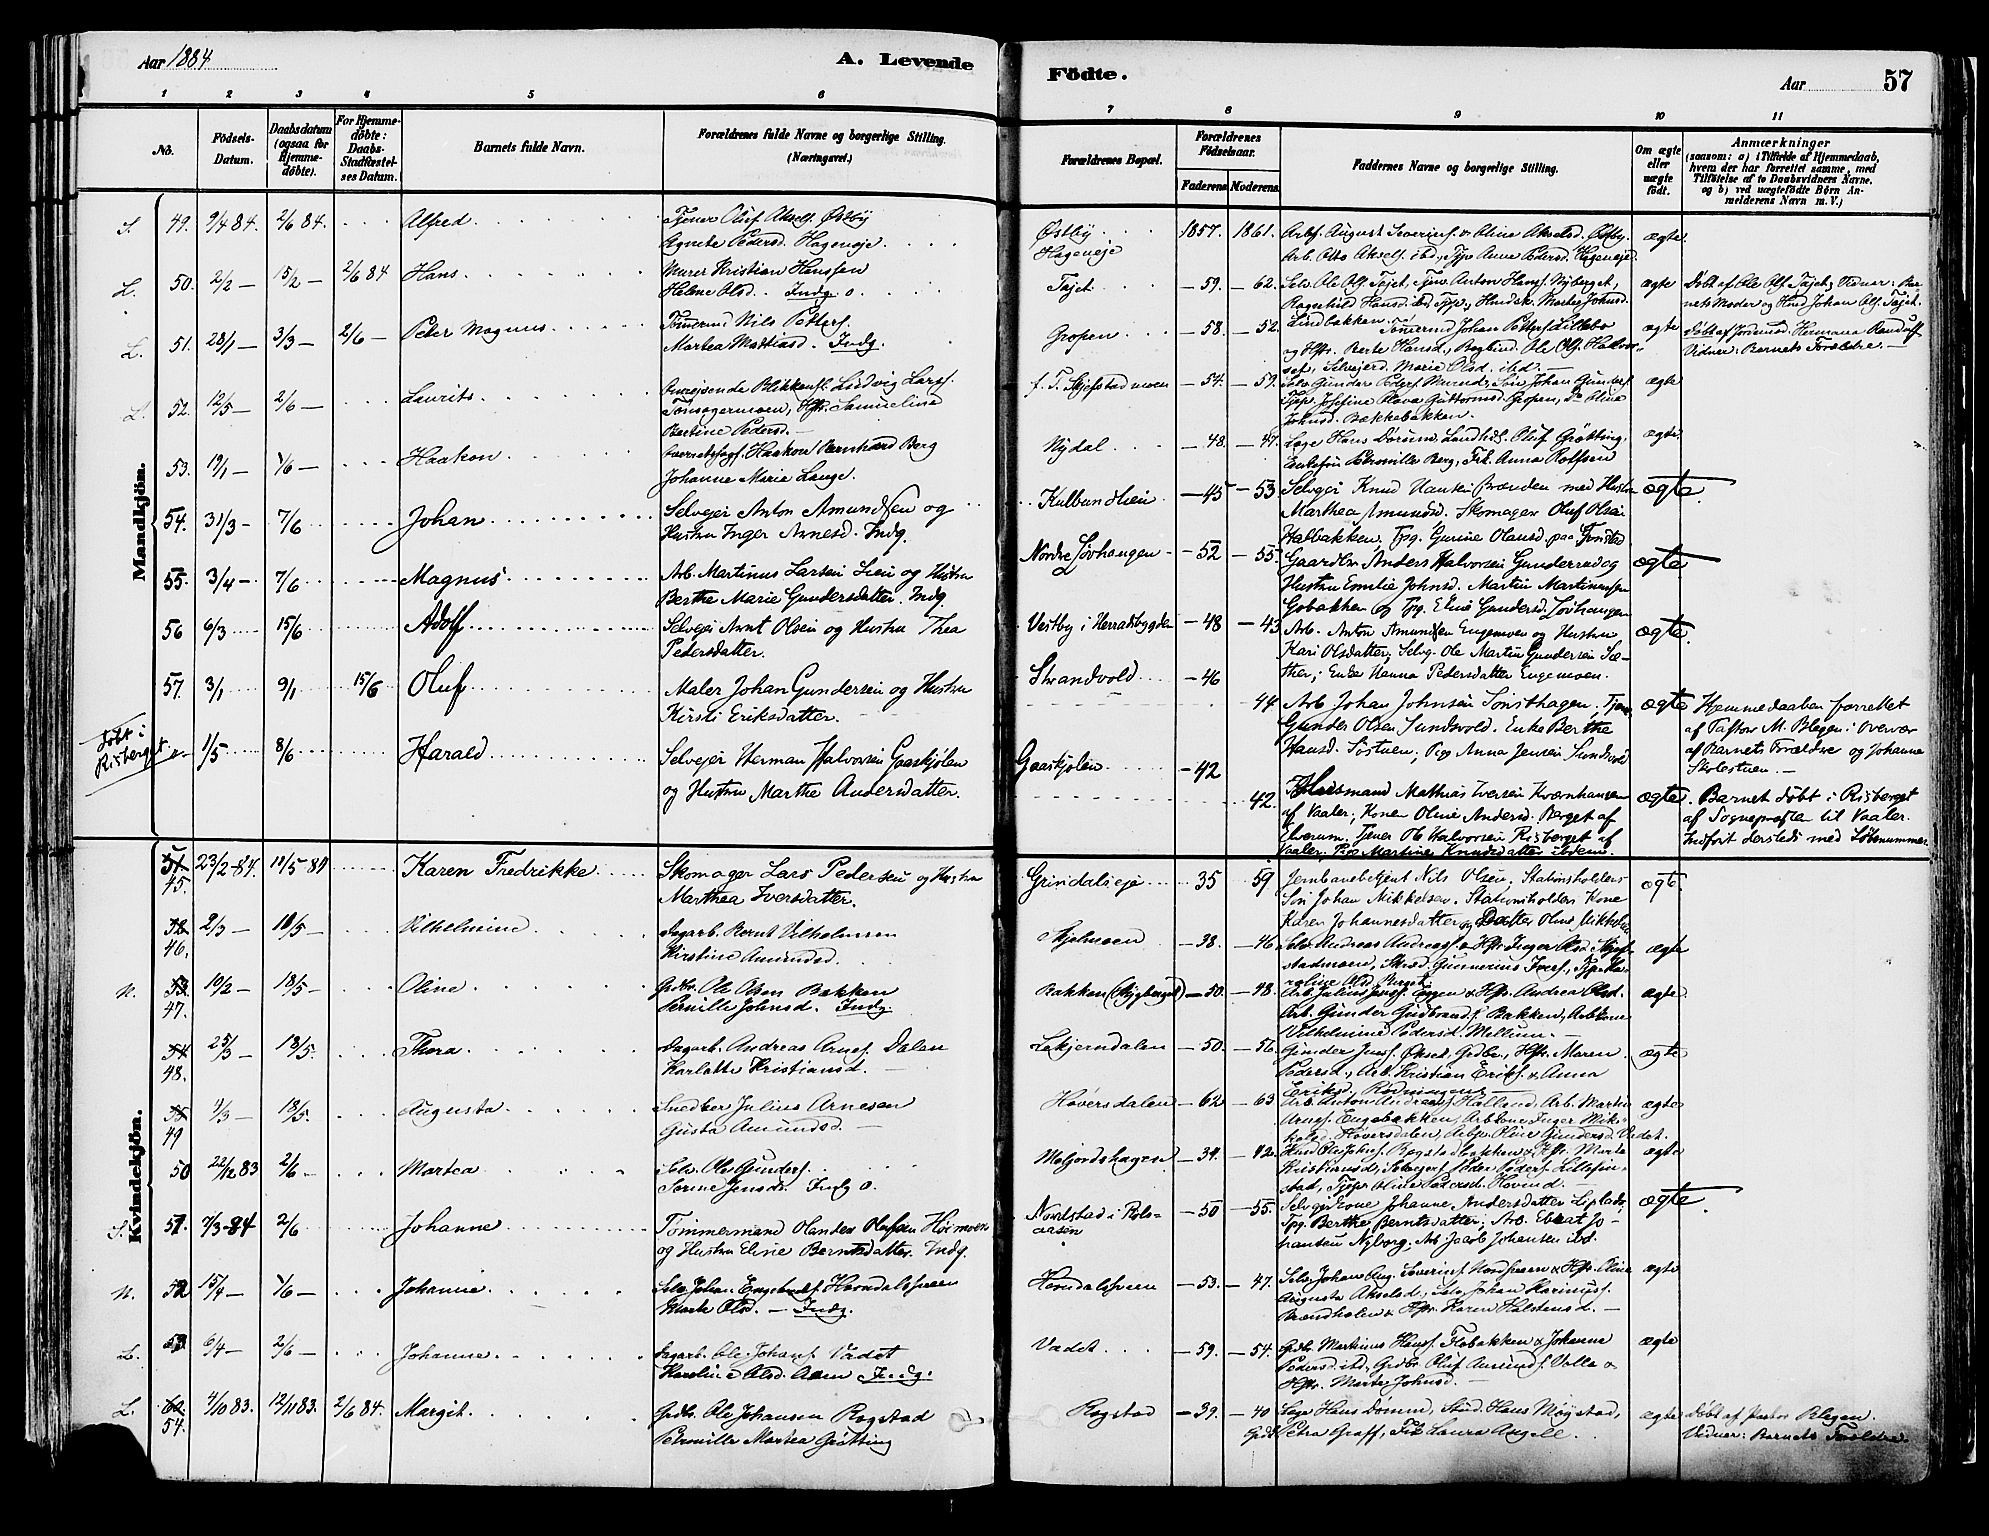 Aar 1884
A. Levende
Födte.
Aar
57
1 2 3 4 5 6 7 8 9 10 11
No.
Födsels-
Datum.
Daabsdatum
(ogsaa for
Hjemme-
döbte).
For Hjemme-
döbte:
Daabs-
Stadfæstel-
ses Datum.
Barnets fulde Navn.
Forældrenes fulde Navne og borgerlige Stilling.
(Næringsvei.)
Forældrenes Bopæl.
Forældrenes
Födselsaar.
Faderens
Moderens
Faddernes Navne og borgerlige Stilling.
Om ægte
eller
uægte
födt.
Anmærkninger
(saasom: a) i Tilfælde af Hjemmedaab,
hvem der har forrettet samme, med
Tilföielse af to Daabsvidners Navne,
og b) ved uægtefödte Børn An-
melderens Navn m. V.)
Mandkjön.
49. 9/4 84. 2/6 84. Alfred
Tjener Oluf Aksels. Østby
Agnete Pedersd. Hageneje
Østby
Hageneje
1857. 1861.
Arbf. August Severinsf. & Olina Akselsd. Østby.
Arb. Otto Akself. ibd., Tjp Anne Pedersd. Hageneje
ægte
L. 50. 2/2 — 15/2 — 2/6 84 Hans
Murer Kristian Hanssen
Helene Olsd. Indg. o.
Tajet
— 59. — 62.
Selv. Ole Olf. Tajet, Tjen. Anton Hansf. Nyberget,
Ragnhild Hansd. ibd.
ægte
Døbt af Ole Olf. Tajet, Vidner: Bar-
nets Moder og Husd Johan Olf. Tajet.
L. 51. 28/1 — 3/3 — 2/6 — Peter Magnus
Tømmermd Nils Petters.
Martea Mattiasd. Indg.
Gropen
— 58. — 52.
Lindbakken. Tømrermd Johan Petters. Lillebo
og Hstr. Berte Hansd.,
sef, Selvejerd. Marie Olsd. ibd —
ægte
Døbt af Jordmod. Hermana Randulff
Vidner: Barnets Forældre. —
L. 52. 12/5 — 2/6 — Laurits
Omrejsende Blikkensl. Ludvig Larsf.
Tønsagermoen, Hstr. Samueline
Bertine Pedersd. —
f. T. Skjefstadmoen
— 54. — 59.
Selv. Gunder Pedersf. Murud, Søn Johan Gundersf.
Tjp. Josefine Olava Guttormsd. Gropen, Do Olina
Johnsd. Bakkebakken.
ægte
53. 19/1 — 1/6 — Haakon
Haakon Bernhard Berg
Johanne Marie Lange.
Nydal
— 48. — 47.
Læge Hans Dørum, Landhdl. Oluf Grøtting,
Enkefru Petronille Berg, Frk. Anna Rolfsen
ægte
54. 31/3 — 7/6 Johan
Selvejer Anton Amundsen og
Hustru Inger Arnesd. Indg.
Kulbundlien
— 45 — 53
Selvejer Knud Hansen Brænden med Hustru
Marthea Amundsd. Skomager Oluf Olsen
Halbakken. Tpg. Gurine Olausd. paa Fonstad
ægte
55. 3/4 — 7/6 Magnus
Arb. Martinus Larsen Lien og Hustru
Berthe Marie Gundersdatter. Indg.
Nordre Løvhaugen
— 52 — 55
Gaardbr Anders Halvorsen Gunderrud og
Hustru Emilie Johnsd. Martin Martinussen
Gobakken og Tpg. Eline Gundersd. Løvhaugen
ægte
56 6/3 15/6 Adolf
Selvejer Arnt Olsen og Hustru Thea
Pedersdatter.
Vestby i Herradsbygden
— 48 — 43
Arb. Anton Amundsen Engemoen og Hustru
Kari Olsdatter, Selvej. Ole Martin Gundersen Sæ-
ther, Enke Hanna Pedersdatter Engemoen.
ægte
57. 3/1 9/1 15/6 Oluf
Maler Johan Gundersen og Hustru
Kirsti Eriksdatter.
Strandvold
— 46 44
Arb Johan Johnsen Sønsthagen, Tjen.
Gunder Olsen Sundvold. Enke Berthe
Hansd. Søstuen; Pige Anna Jensen Sundvold
ægte
Hjemmedaaben forrettet
af Pastor M. Blegen i Overvær
af Barnets Forældre og Johanne
Skolestuen. —
Døbt i
Risberget
1/5 8/6 Harald
Selvejer Herman Halvorsen Gaaskjølen
og Hustru Marthe Andersdatter.
Gaaskjølen
— 42 42.
Husmand Mathias Iversen Kværnhausen
af Vaaler; Konen Oline Andersd. Berget af
Elverum. Tjener Ole Halvorsen Risberget af
Vaaler, Pige Martine Knudsdatter ibidem.
ægte
Barnet døbt i Risberget
af Sognepræsten til Vaaler.
Indført dersteds med Løbenummer
Kvindekjön.
45. 23/2-84. 11/5-84 Karen Fredrikke
Skomager Lars Pedersen og Hustru
Marthea Iversdatter.
Grindalseje
35 59
Jernbanebetjent Nils Olsen, Stationsholders
Søn Johan Mikkelsen. Stationsholders Kone
Karen Johannesdatter og Datter Oline Mikkelsen
ægte
46. 2/3 — 18/5 — Vilhelmine
Dagarb. Bernt Vilhelmsen
Kirstine Amundsd.
Skjelmoen
— 38. — 46
Selv. Andreas Andreasf. & Hstr. Inger Olsd. Skjef-
stadmoen, Skræd. Gunnerius Iversf., Tjp. Ka-
roline Olsd.
ægte
N. 47. 10/2 — 18/5 — Oline
Grdbr. Ole Olsen Bakken
Pernille Johnsd. Indg
Bakken (Nygberget)
— 50. — 48.
Arb. Julius Jensf. Eggen & Hstr. Andrea Olsd.
Arb. Gunder Gudbrandsf. Bakken, Arbkone
Vilhelmine Pedersd. Mellum. —
ægte
48. 25/3 — 18/5. Thora
Dagarb. Andreas Arnesf. Dalen
Karlotte Kristiansd. —
Lekjerndalen
— 50. — 56.
Gunder Jensf. Økset, Grdbr., Hstr. Maren
Pedersd., Arb. Kristian Eriksf. & Anna
Eriksd. Rødningen
ægte
49 4/3 — 18/5. Augusta
Snedker Julius Arnesen
Gusta Amundsd. —
Hoversdalen
— 62 — 63
Arb. Anton Andreasf. Halland, Arb. Martin
Arnesf. Engebakken, Arbkone Inger Mik-
kelsd. Hoversdalen, Arbp. Oline Gundersd. Vadet.
ægte
50 22/12 83 2/6 — Martea
Selv. Ole Gundersf.
Serine Jensd. Indg o.
Meljordshagen
— 34. — 42.
Husmd Ole Johnsf. Rogstadbakken & Hstr. Marte
Kristiansd., Selvejersf. Peder Pedersf. Lillefin-
stad, Tjp. Oline Pedersd. Hovind. —
ægte
S. 51. 7/3-84 2/6 Johanne
Tømmermand Olander Olufsen Hørmoen
og Hustru Eline Berntsdatter. Indg.
Nordstad i Rols-
aasen
— 50 — 55.
Selvejerkone Johanne Andersdatter Lipladsf.
Tpg. Berthe Berntsdatter; Arb. Ebert Jo-
hansen Nyborg; Arb Jacob Johansen ibd.
ægte
N. 52 15/4 — 1/6 — Johanne
Selv. Johan Engebretsf. Horndalsveen
Marte Olsd. — Indg.
Horndalsveen
— 53. — 47.
Selv. Johan Aug. Severinsf. Nordsveen & Hstr. Olina
Augusta Akselsd., Selv. Johan Karinusf.
Brændholen & Hstr. Karen Halstensd. —
ægte
L. 53 6/4 — 2/6 — Johanne
Dagarb. Ole Johansf. Vadet
Karoline Olsd. Aaen Indg.
Vadet
— 59. — 54.
Grdbr. Martinus Hansf. Flobakken & Johanne
Pedersd. ibd., Grdbr. Oluf Amundsf. Velle &
Hstr. Marte Johnsd. —
ægte
L. 54. 4/10 83. 12/11 83. 2/6 84. Margit
Grdbr. Ole Johansen Rogstad
Petronille Martea Grøtting
Rogstad
— 39. — 40
Læge Hans Dørum, Stud. Hans Møystad,
Petra Graff, Frk Laura Angell.
ægte
Døbt af Pastor Blegen.
Vidner: Barnets Forældre.